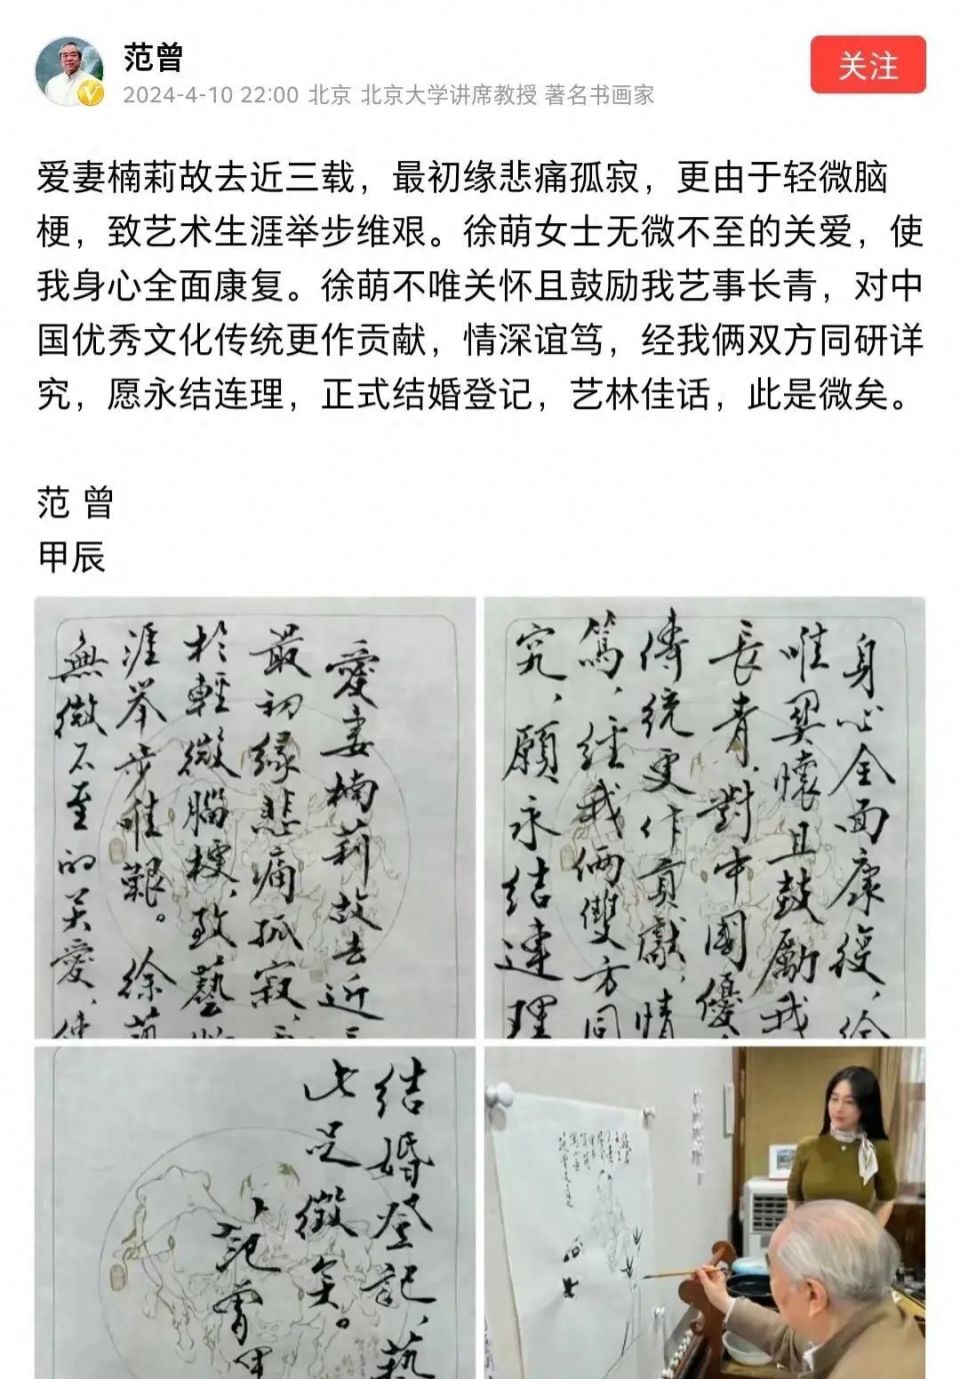 范曾
关注
2024-4-10 22:00 北京 北京大学讲席教授 著名书画家
爱妻楠莉故去近三载，最初缘悲痛孤寂，更由于轻微脑
梗，致艺术生涯举步维艰。徐萌女士无微不至的关爱，使
我身心全面康复。徐萌不唯关怀且鼓励我艺事长青，对中
国优秀文化传统更作贡献，情深谊笃，经我俩双方同研详
究，愿永结连理，正式结婚登记，艺林佳话，此是微矣。
范 曾
甲辰
愛妻楠莉故去近三
最初缘悲痛孤寂，
於輕微腦梗，致藝
涯举步维艱。徐萌
無微不至的关愛，使
身心全面康復，徐
唯関懷且鼓勵我
長青，對中國優
傳統更作貢獻，情
篤，經我俩雙方同
究，願永结連理
结婚登记，藝
此是微矣。
范曾甲